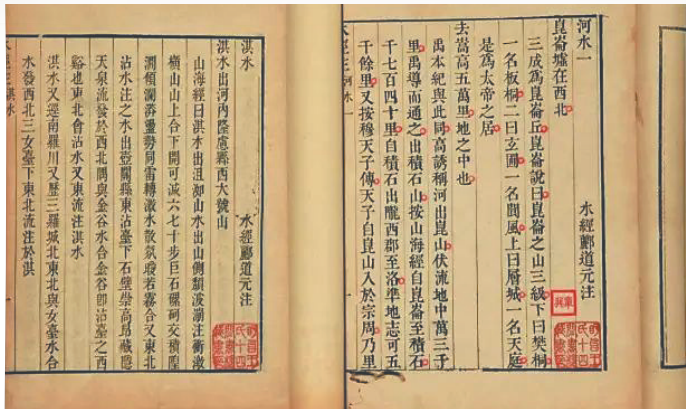 河水一
水經酈道元注
崑崙墟在西北
三成爲崑崙丘崑崙說曰崑崙之山三級下曰樊桐
一名板桐二曰玄圃一名閬風上曰層城一名天庭
是爲太帝之居
去嵩高五萬里地之中也
禹本紀與此同高誘稱河出崑山伏流地中萬三千
里禹導而通之出積石山按山海經自崑崙至積石
千七百四十里自積石出隴西郡至洛準地志可五
千餘里又按穆天子傳天子自崑山入於宗周乃里
淇水
水經酈道元注
淇水出河內隆慮縣西大號山
山海經曰淇水出沮洳山水出山側頹波漰注衝激
橫山山上合下開可減六七十步巨石磥砢交積隍
澗傾瀾漭盪勢同雷轉激水散氛曖若霧合又東北
沾水注之水出壺關縣東沾臺下石壁崇高昂藏隱
天泉流發於西北隅與金谷水合金谷即沾臺之西
谿也東北會沾水又東流注淇水
淇水又逕南羅川又歷三羅城北東北與女臺水合
水發西北三女臺下東北流注於淇